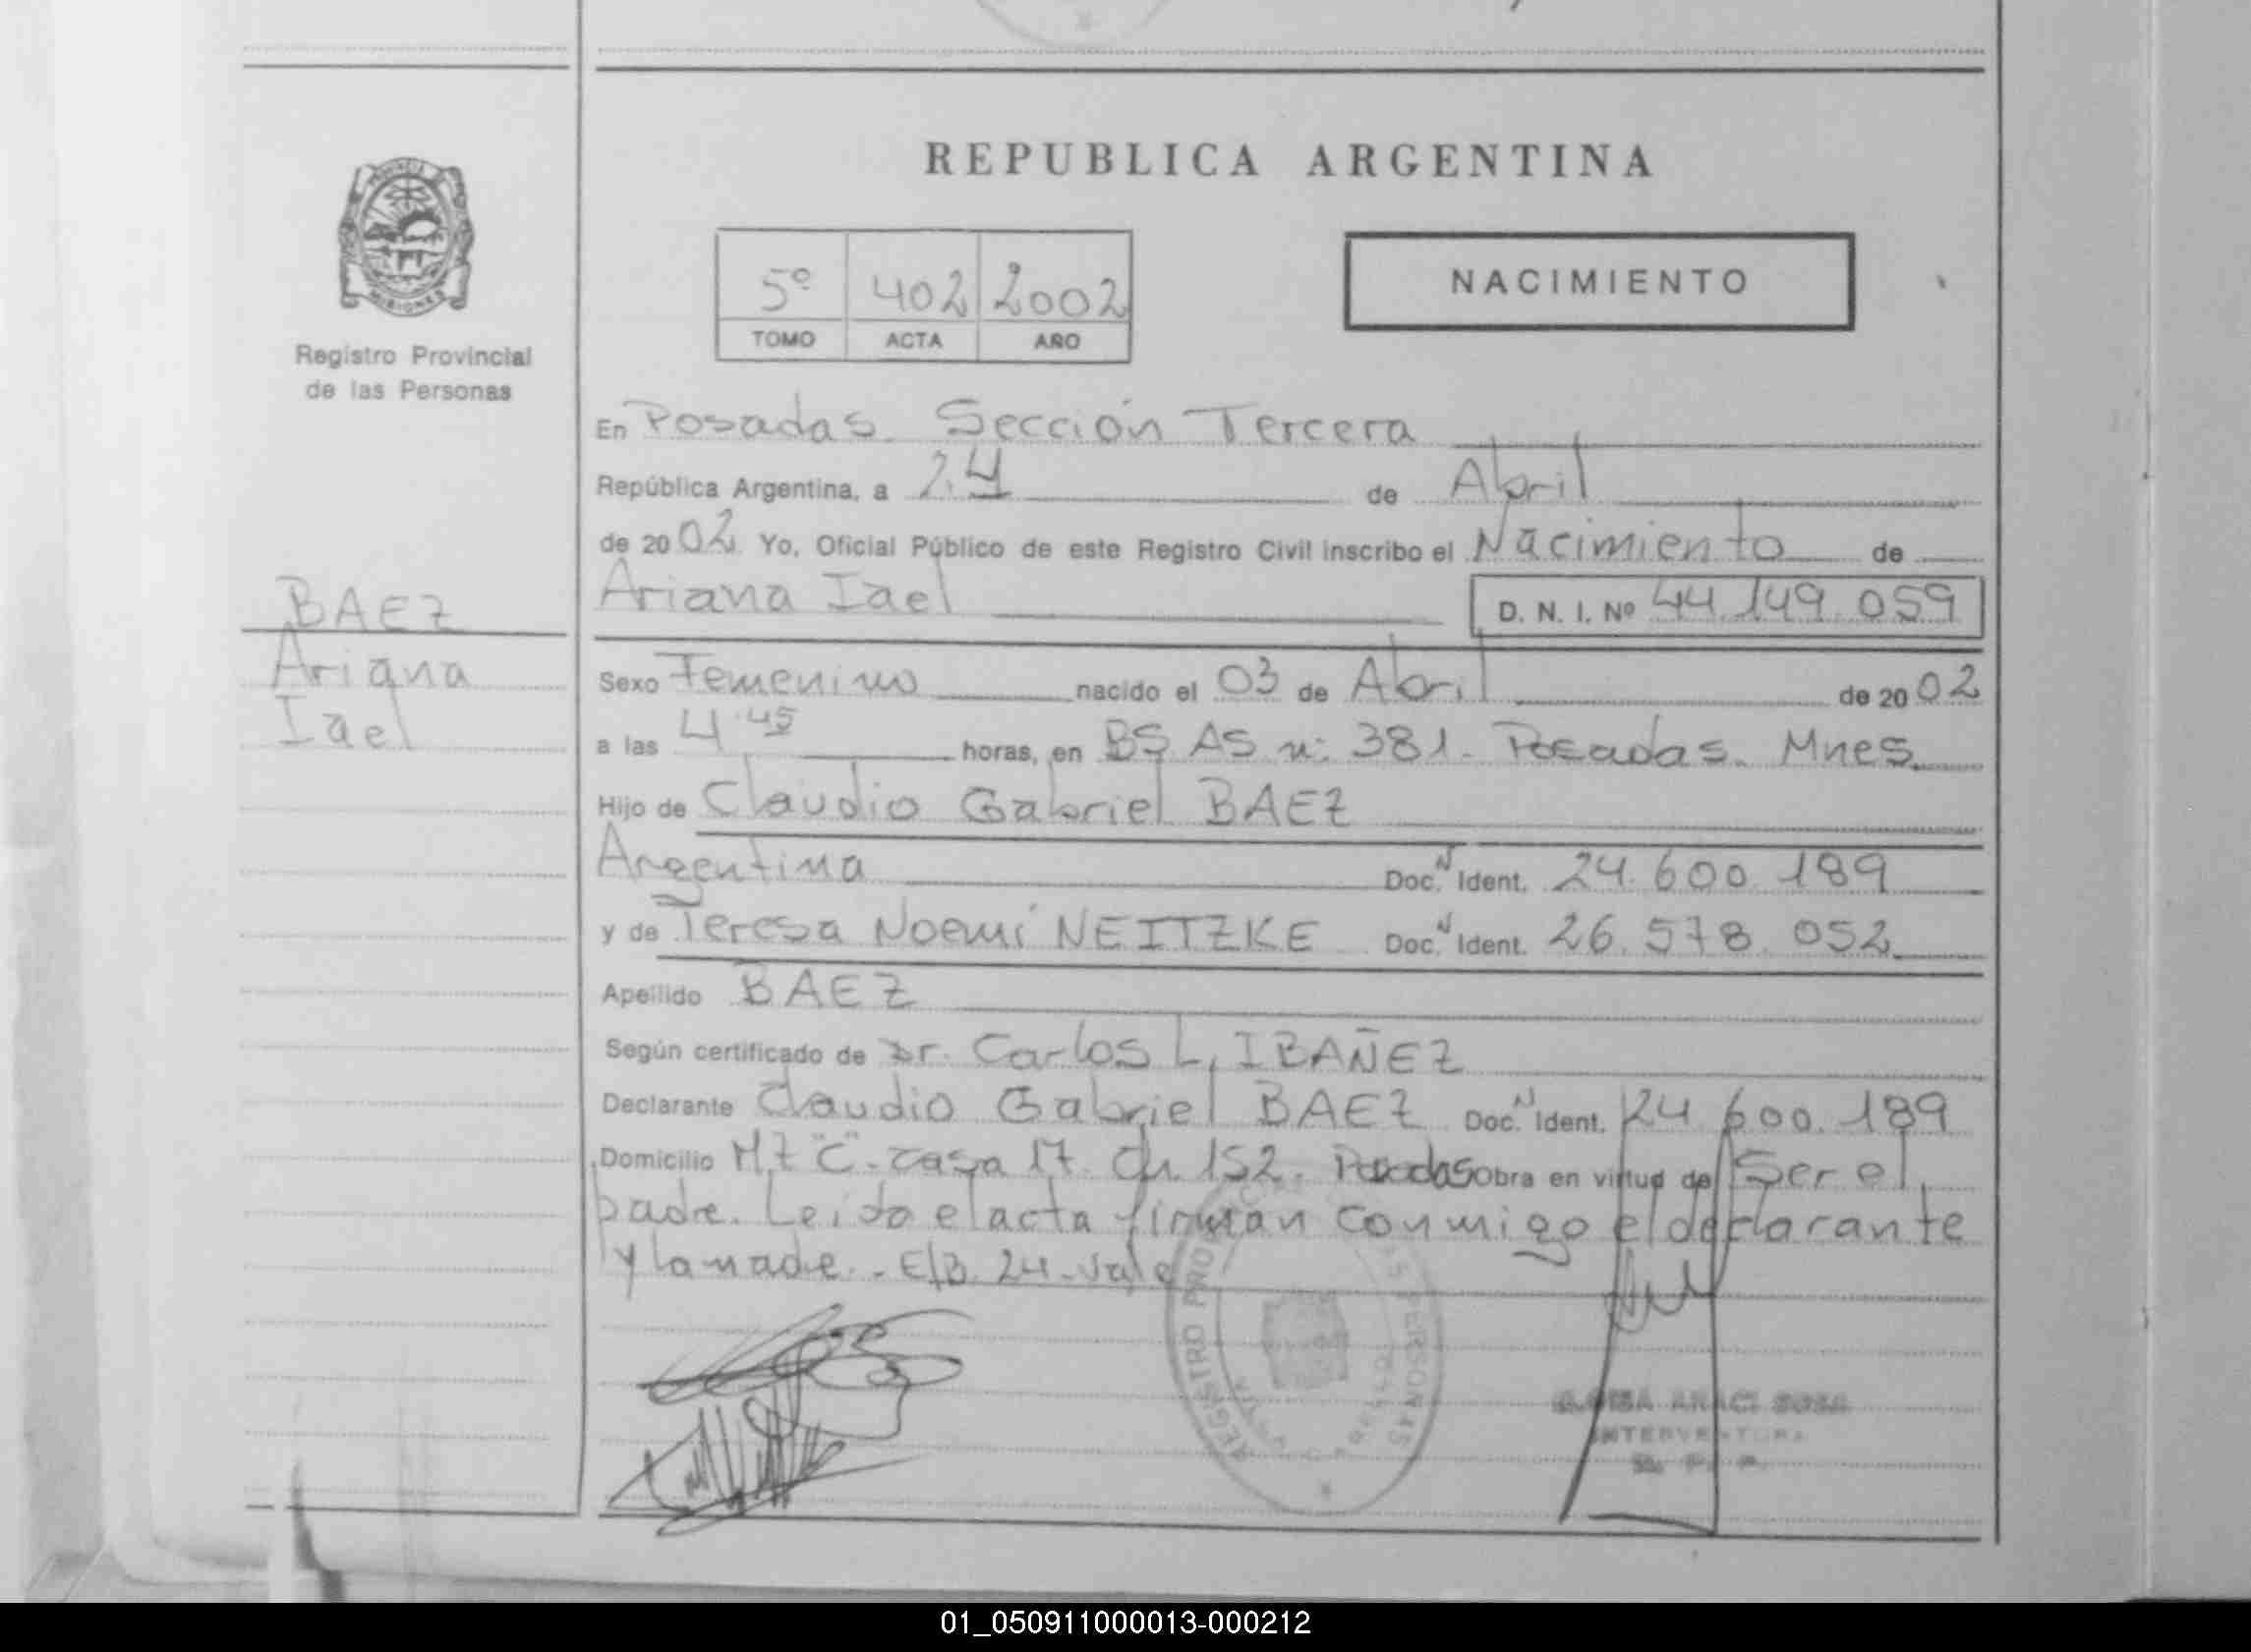 REPUBLICA ARGENTINA
PROVINCIA DE
MISIONES
Registro Provincial
de las Personas
5º 402 2002
TOMO ACTA AÑO
NACIMIENTO
En Posadas. Sección Tercera
República Argentina, a 24 de Abril
de 2002 Yo, Oficial Público de este Registro Civil inscribo el Nacimiento de
BAEZ
Ariana
Iael
Ariana Iael D. N. I. Nº 44.149.059
Sexo Femenino nacido el 03 de Abril de 2002
a las 4.45 horas, en BS AS n: 381. Posadas. Mnes.
Hijo de Claudio Gabriel BAEZ
Argentina Doc. N Ident. 24.600.189
y de Teresa Noemí NEITZKE Doc. N Ident. 26.578.052
Apellido BAEZ
Según certificado de Dr. Carlos L. IBAÑEZ
Declarante Claudio Gabriel BAEZ Doc. N Ident. 24.600.189
Domicilio MZ "C" - casa 17. Ch. 152. Posadas obra en virtud de Ser el
padre. Leida el acta firman conmigo el declarante
y la madre. - E/B. 24 - Vale
REGISTRO PERSONAS
ARACI SOSA
INTERVENTORA
R. P. P.
01_050911000013-000212